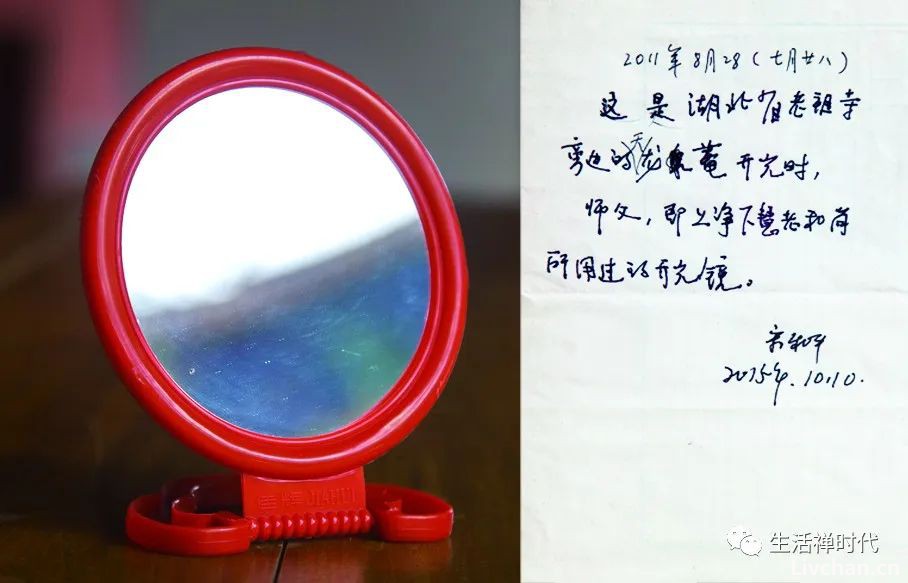 2011年8月28(七月廿八)
这是湖北省老祖寺
旁边的 菴开光时,
师父,即上净下慧老和尚
所用过的开光镜。
2015年.10.10.
生活禅时代
Livchan.cn